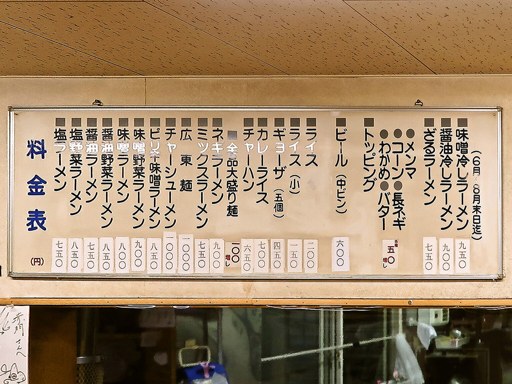 料金表 (円)
■塩ラーメン 七五〇
■塩野菜ラーメン 八五〇
■醤油ラーメン 七五〇
■醤油野菜ラーメン 八五〇
■味噌ラーメン 八〇〇
■味噌野菜ラーメン 九〇〇
■ピリ辛味噌ラーメン 八五〇
■チャーシューメン 一〇〇〇
■広東麺 一〇〇〇
■ミックスラーメン 七五〇
■ネギラーメン 九〇〇
■全品大盛り麺 一〇〇増し
■チャーハン 六五〇
■カレーライス 七〇〇
■ギョーザ(五個) 四五〇
■ライス(小) 一五〇
■ライス 二〇〇
■ビール(中ビン) 六〇〇
■トッピング
●わかめ●バター 五〇増し
●コーン●長ネギ
●メンマ
■ざるラーメン 七五〇
■醤油冷しラーメン 九五〇
■味噌冷しラーメン 九五〇
(6月〜8月末日迄)